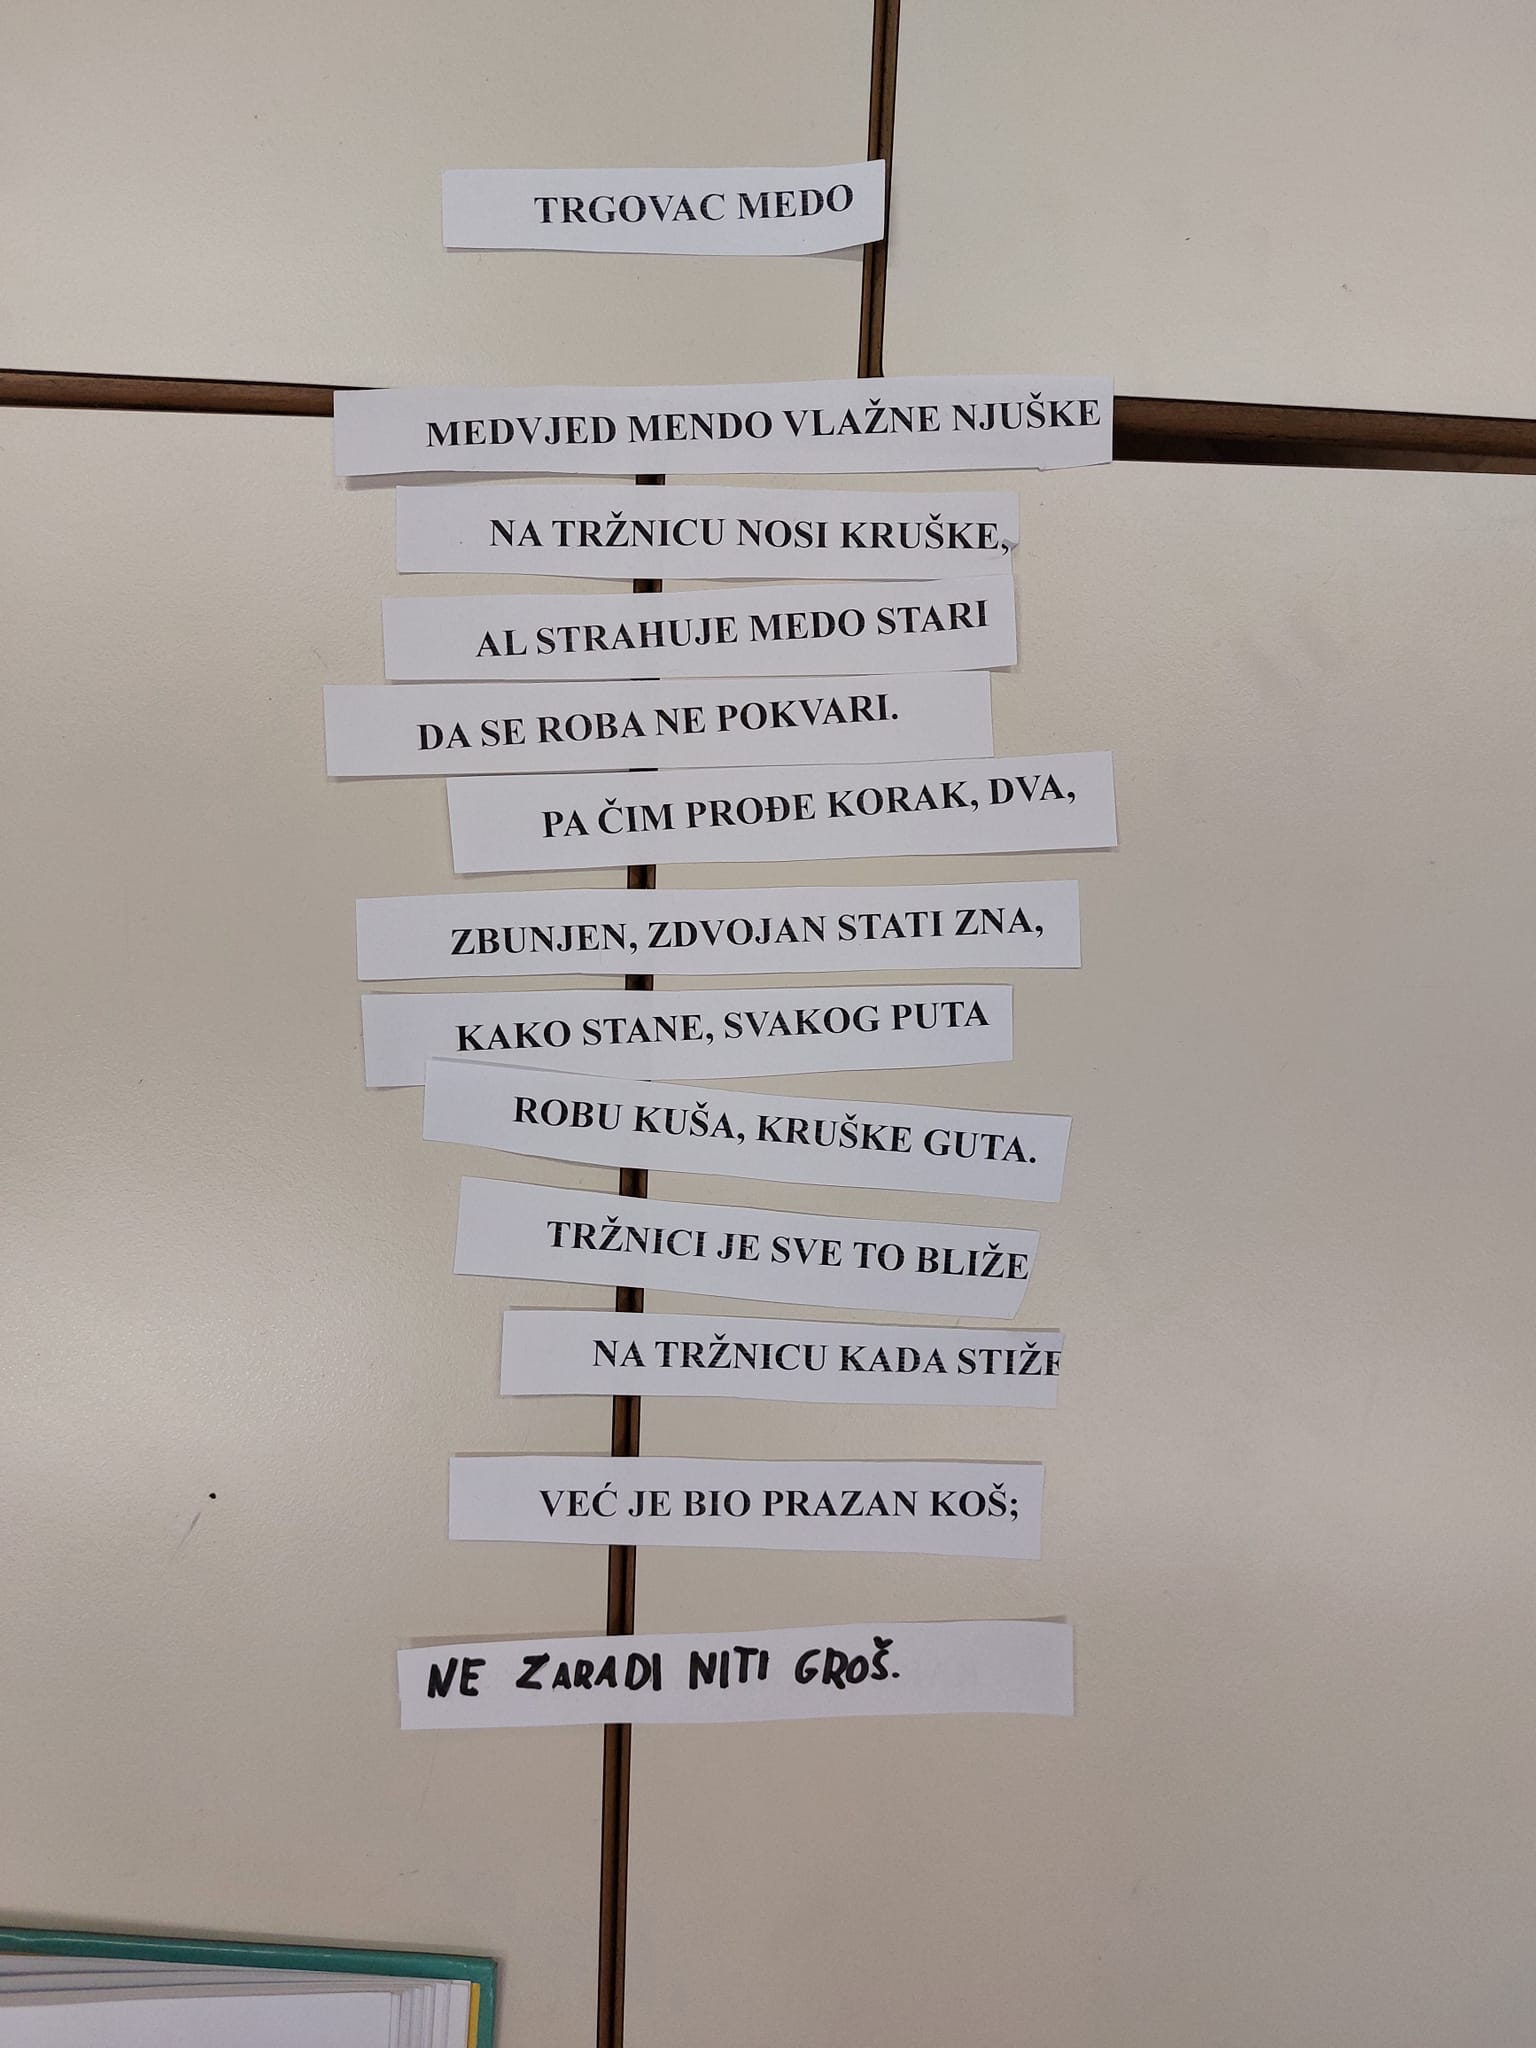 TRGOVAC MEDO
MEDVJED MENDO VLAŽNE NJUŠKE
NA TRŽNICU NOSI KRUŠKE,
AL STRAHUJE MEDO STARI
DA SE ROBA NE POKVARI.
PA ČIM PROĐE KORAK, DVA,
ZBUNJEN, ZDVOJAN STATI ZNA,
KAKO STANE, SVAKOG PUTA
ROBU KUŠA, KRUŠKE GUTA.
TRŽNICI JE SVE TO BLIŽE
NA TRŽNICU KADA STIŽE
VEĆ JE BIO PRAZAN KOŠ;
NE ZARADI NITI GROŠ.